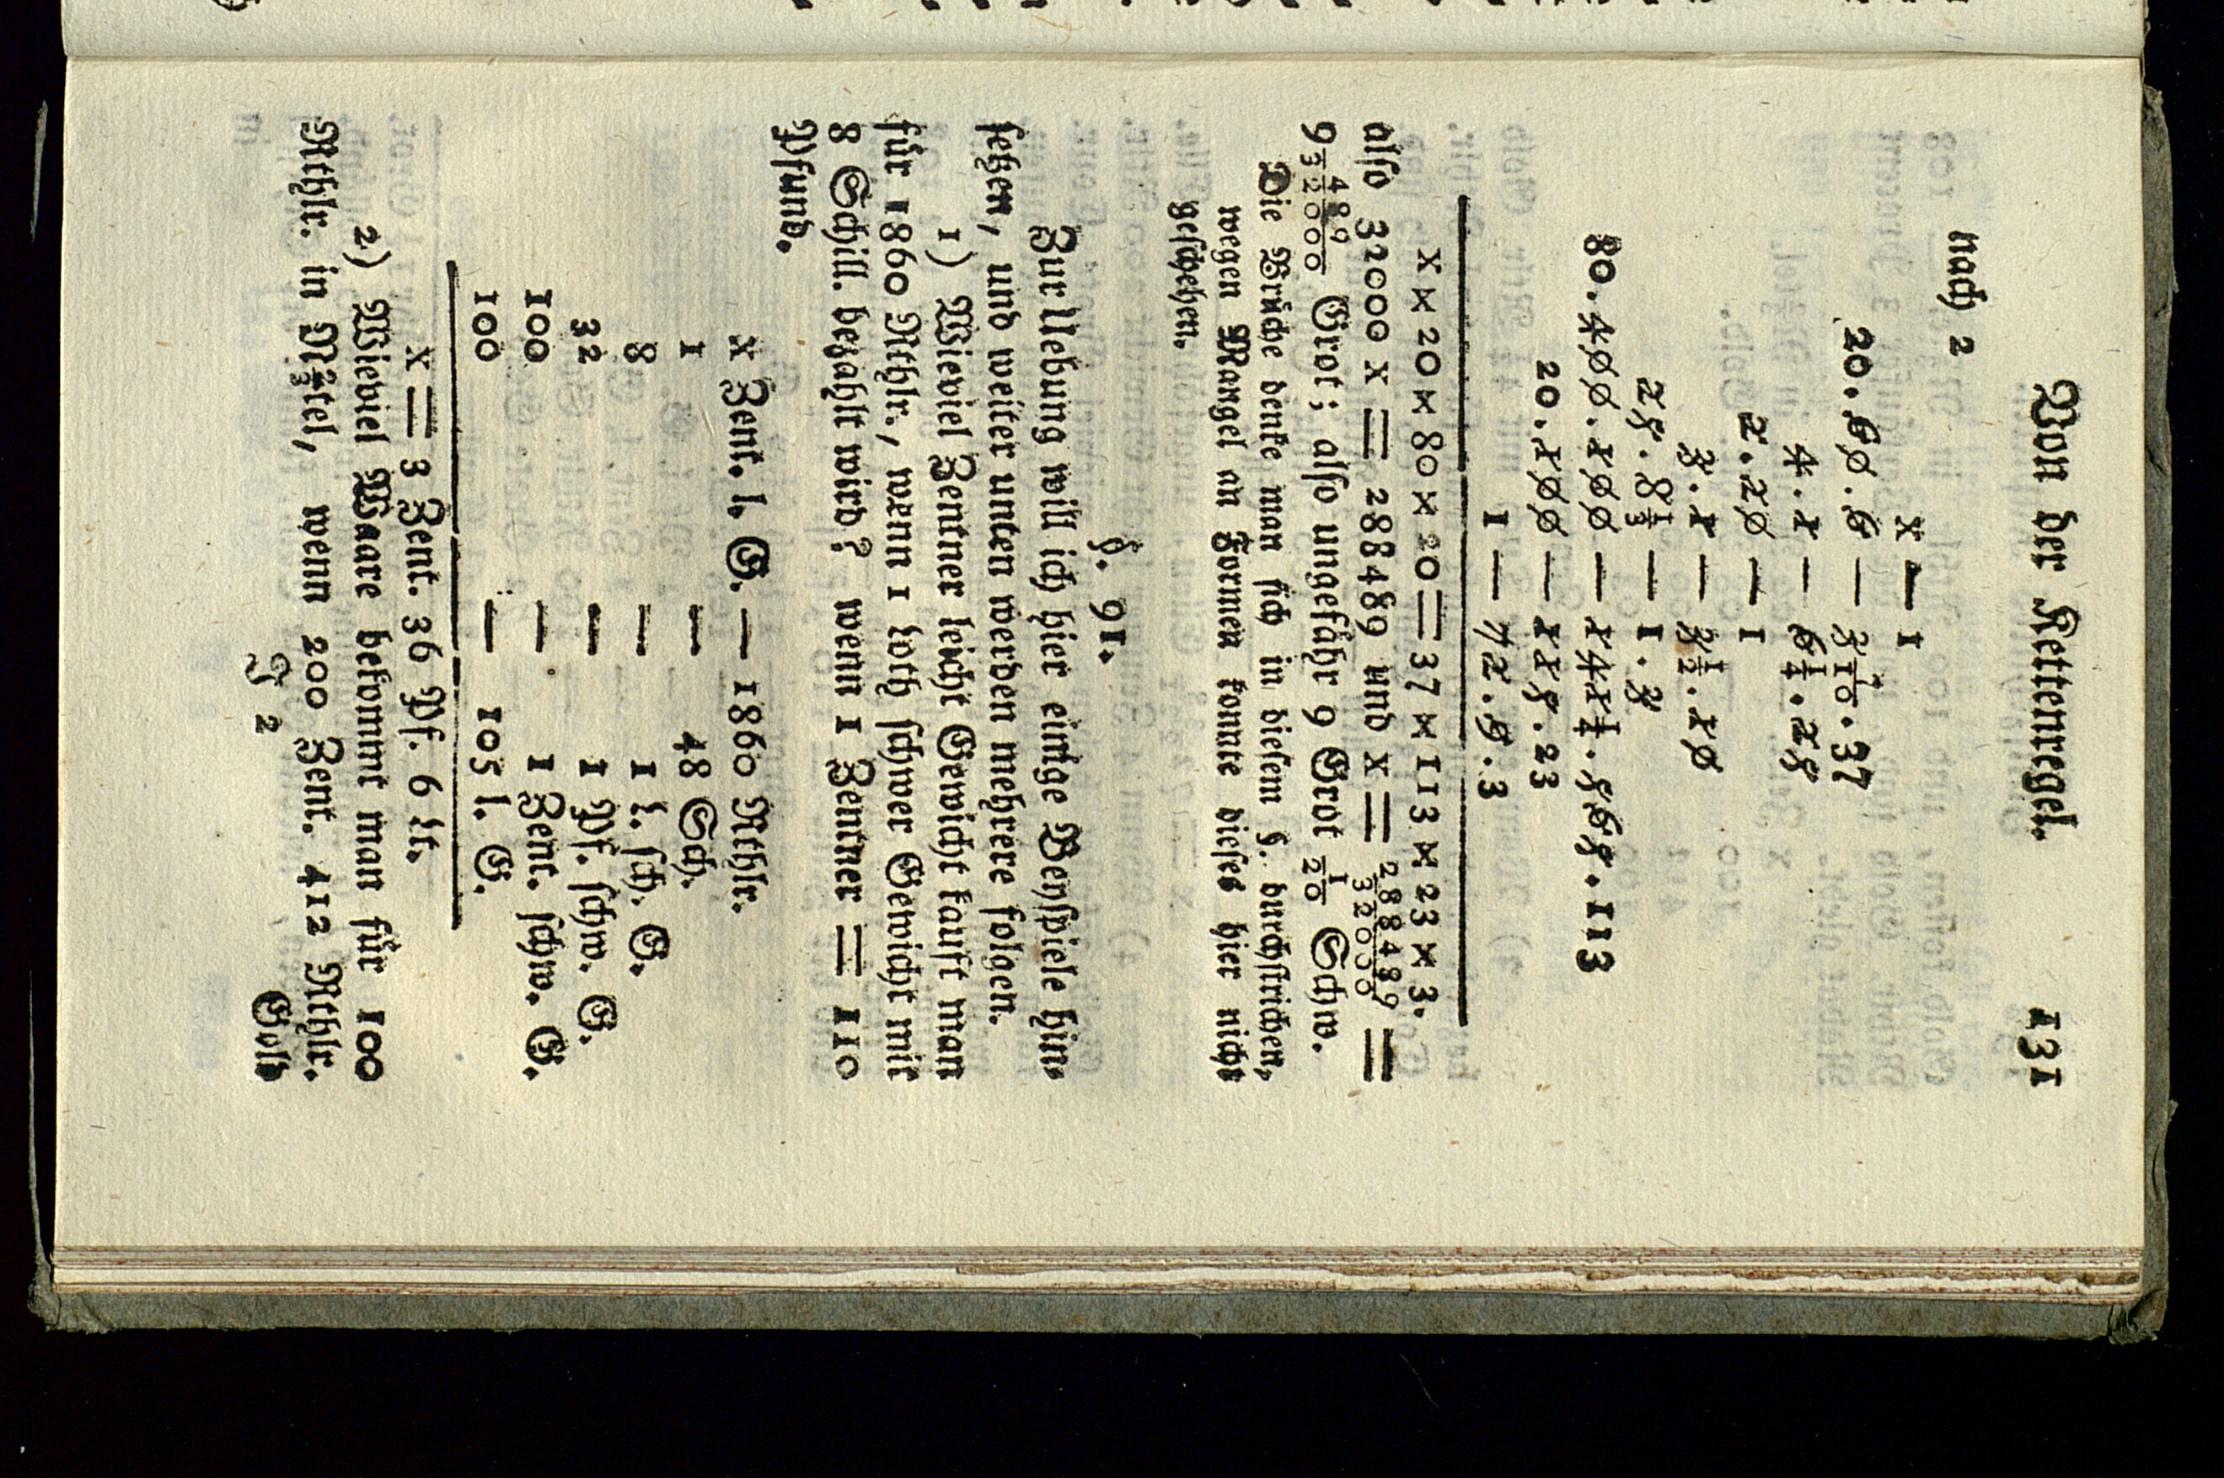 Von der Kettenregel. 131
nach 2
x — 1
20.60.6 — 3 1/10.37
4.1 — 6 1/4.25
2.20 — 1
3.1 — 3 1/2.10
25.8 1/3 — 1.3
80.400.100 — 141 1/4.565.113
20.100 — 115.23
1 — 72.9.3
x × 20 × 80 × 20 = 37 × 113 × 23 × 3.
also 32000 x = 288489 und x = 288489/32000 =
9 489/32000 Grot; also ungefähr 9 Grot 1/20 Schw.
Die Brüche denke man sich in diesem §. durchstrichen,
wegen Mangel an Formen konnte dieses hier nicht
geschehen.
§. 91.
Zur Uebung will ich hier einige Beyspiele hin-
setzen, und weiter unten werden mehrere folgen.
1) Wieviel Zentner leicht Gewicht kauft man
für 1860 Rthlr., wenn 1 Loth schwer Gewicht mit
8 Schill. bezahlt wird? wenn 1 Zentner = 110
Pfund.
x Zent. l. G. — 1860 Rthlr.
1 — 48 Sch.
8 — 1 L. sch. G.
32 — 1 Pf. schw. G.
100 — 1 Zent. schw. G.
100 — 105 l. G.
x = 3 Zent. 36 Pf. 6 Lt.
2) Wieviel Waare bekommt man für 100
Rthlr. in N 2/3tel, wenn 200 Zent. 412 Rthlr.
J 2 Gold